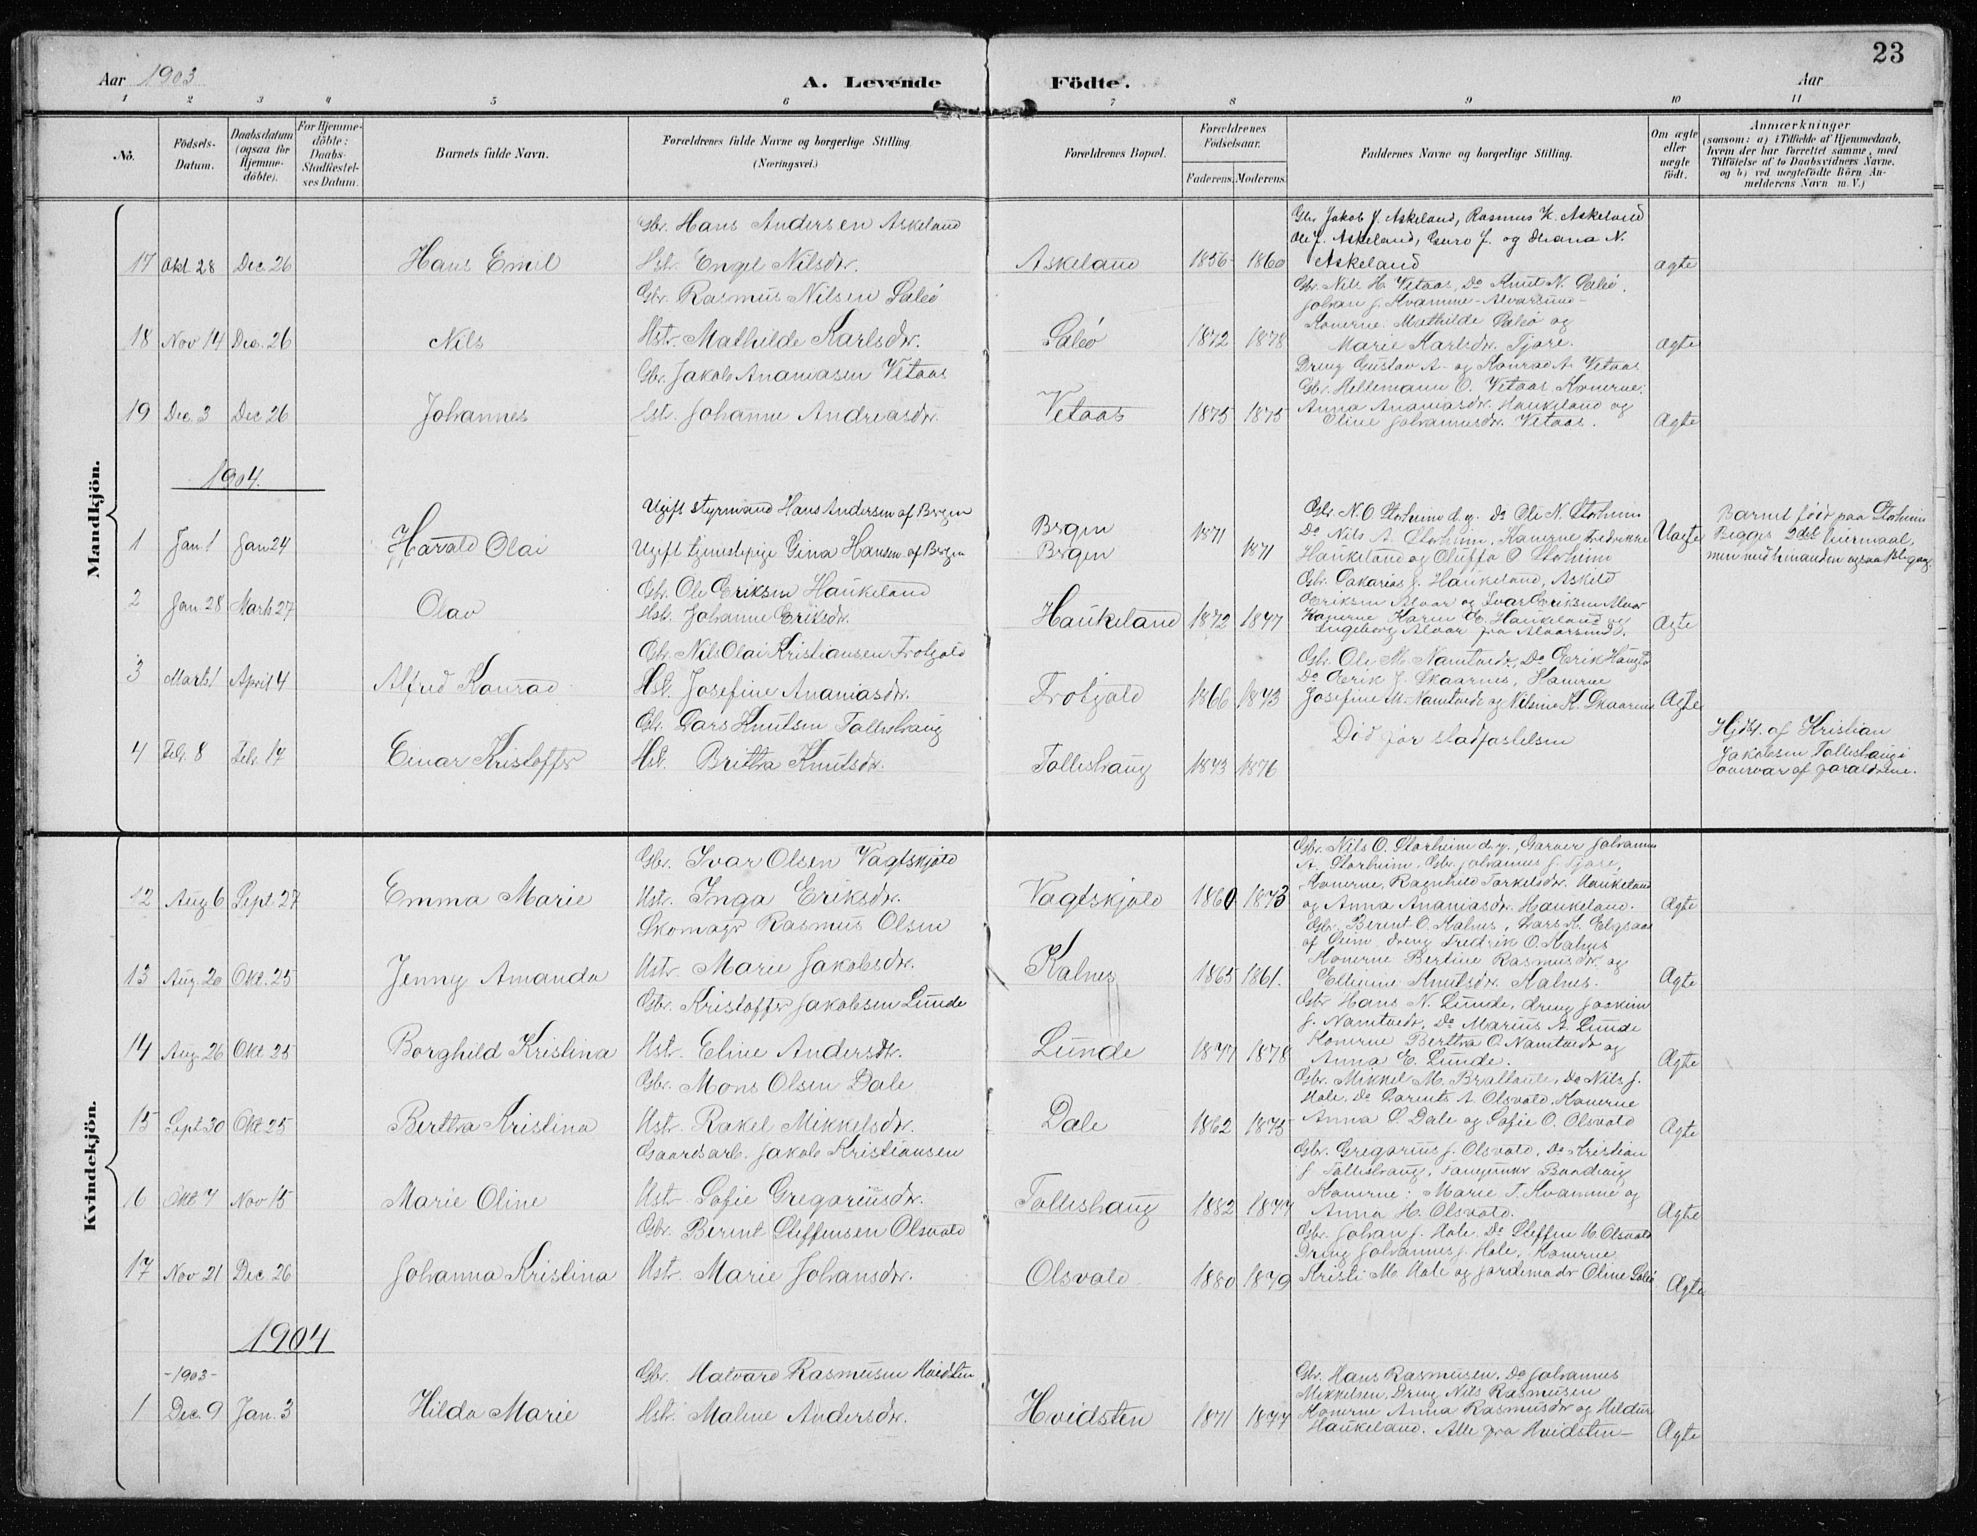 23
Aar 1903
A. Levende Födte.
Aar
1 2 3 4 5 6 7 8 9 10 11
No.
Födsels-Datum.
Daabsdatum (ogsaa for Hjemme-döbte).
For Hjemme-döbte: Daabs-Stadfæstel-ses Datum.
Barnets fulde Navn.
Forældrenes fulde Navne og borgerlige Stilling. (Næringsvei.)
Forældrenes Bopæl.
Forældrenes Födselsaar.
Faderens. Moderens.
Faddernes Navne og borgerlige Stilling.
Om ægte eller uægte födt.
Anmærkninger
(saasom: a) i Tilfælde af Hjemmedaab, hvem der har forrettet samme, med Tilföielse af to Daabsvidners Navne, og b) ved uægtefödte Börn Anmelderens Navn m. V.)
Mandkjön.
Gbr. Hans Andersen Askeland
Gbr Jakob J. Askeland, Rasmus K. Askeland
Ole J. Askeland, Guro J. og N.
17 Okt 28 Dec. 26 Hans Emil Hst. Engel Nilsdr. Askeland 1856 1860 Askeland ægte
Gbr. Rasmus Nilsen Saleö
Gbr. Nils H. Vetaas, Do Knut N. Saleö.
Johan J. Kvamme - Alvarsund -
Konerne: Mathilde Saleö og
18 Nov 14 Dec. 26 Nils Hst. Mathilde Karlsdr. Saleö 1872 1878 Marie Karlsdr. Tjore. ægte
Gbr. Jakob Ananiasen Vetaas
Dreng Gustav A- og Konrad A. Vetaas
Gbr. Hellemann O. Vetaas Konerne:
19 Dec. 3 Dec. 26 Johannes Hst. Johanne Andreasdr. Vetaas 1875 1875 Anna Ananiasdr. Haukeland og
Oline Johannesdr. Vetaas. Ægte
1904.
Ugift Styrmand Hans Andersen af Bergen
Gbr. N. O. Storheim d.y. Do Ole N. Storheim
Barnet född paa Storheim
1 Jan 1 Jan 24 Harald Olai Ugift tjenestepige Gina Hansen af Bergen
Bergen
Bergen
1871
1871
Do Nils A. Storheim, Konerne Fredrikke
Haukeland og Oluffa O. Storheim
Uægte
Begges 2det leiermaal,
men med hinanden ogsaa
Gbr. Ole Eriksen Haukeland
Gbr. Sakarias J. Haukeland, Askeld
2 Jan 28 Marts 27 Olav Hst. Johanne Eriksdr. Haukeland 1872 1877
Eriksen Alvar og Ivar Eriksen Alvar
Konerne Karen E. Haukeland og
Ingeborg Alvar fra Alvarsund. Ægte
Gbr. Nils Olai Kristiansen Trotjold
Gbr. Ole M. Namtvedt, Do Erik
3 Marts 1 April 4 Alfred Konrad Hst. Josefine Ananiasdr. Trotjold 1866 1873
Do Erik J. Skaarnes, Konerne
Josefine M. Namtvedt og K. Skaarnes Ægte
Gbr. Lars Knutsen Tolleshaug
Död för stadfæstelsen
4 Feb. 8 Febr. 17 Einar Kristoffer Hst. Brithe Knutsdr. Tolleshaug 1873 1876
Hjdt. af Kristian
Jakobsen Tolleshaug i
overvær af forældrene.
Kvindekjön.
Gbr. Ivar Olsen Vagtskjold
Gbr. Nils O. Storheim d.y., Garver Johannes
A. Storheim, Gbr. Johannes J. Tjore,
12 Aug 6 Sept. 27 Emma Marie Hst. Inga Eriksdr. Vagtskjold 1860 1873
Konerne, Ragnhild Torkelsdr. Haukeland
og Anna Ananiasdr. Haukeland. Ægte
Skomager Rasmus Olsen
Gbr. Berent O. Kalnes, Lars K.
af Seim, dreng Fredrik O. Kalnes
13 Aug 20 Okt. 25 Jenny Amanda Hst. Marie Jakobsdr. Kalnes 1865 1861.
Konerne Bertine Rasmusdr. og
Knutsdr. Kalnes. Ægte
Gbr. Kristoffer Jakobsen Lunde
Gbr Hans N. Lunde, dreng Joakim
J. Namtvedt, Do Marius A. Lunde
14 Aug 26 Okt 25 Borghild Kristina Hst. Eline Andersdr. Lunde 1877 1878
Konerne Bertha O. Namtvedt og
Anna E. Lunde. Ægte
Gbr. Mons Olsen Dale
Gbr. Mikkel M. Do Nils J.
Hole, Do Lorents A. Olsvold, Konerne
15 Sept 30 Okt 25 Bertha Kristina Hst. Rakel Mikkelsdr. Dale 1862 1875
Anna S. Dale og Sofie O. Olsvold Ægte
Gaardsarb. Jakob Kristiansen
Gbr. Gregorius J. Olsvold, Do Kristian
J. Tolleshaug,
16 Okt 7 Nov 15 Marie Oline Hst. Sofie Gregoriusdr. Tolleshaug 1882 1877
Konerne: Marie T. Kvamme og
Anna H. Olsvold. Ægte
Gbr. Berent Steffensen Olsvold
Gbr. Johan J. Hole, Do Steffen M. Olsvold
Dreng Johannes J. Hole, Konerne
17 Nov 21 Dec. 26 Johanna Kristina Hst. Marie Johansdr. Olsvold 1880 1879
Kristi M. Hole og Jordemoder Oline Saleö Ægte
1904
-1903-
Gbr. Halvard Rasmusen Hvidsten
Gbr. Hans Rasmusen, Do Johannes
Mikkelsen, Dreng Nils Rasmusen
1 Dec. 9 Jan. 3 Hilda Marie Hst. Malene Andersdr. Hvidsten 1871 1877
Konerne Anna Rasmusdr og Hildur
Haukeland. Alle fra Hvidsten - Ægte